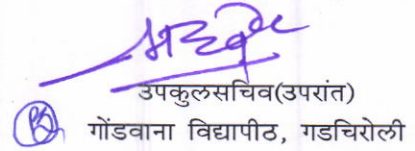 उपकुलसचिव(उपरांत)
गोंडवाना विद्यापीठ, गडचिरोली